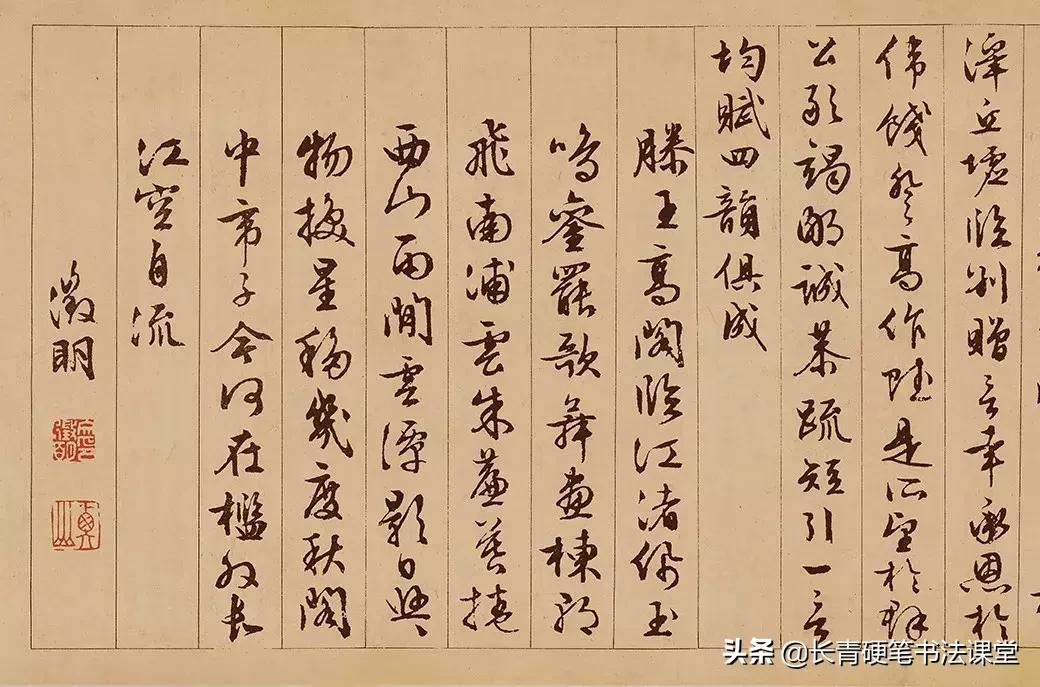 澤丘墟臨別贈言幸承恩於
偉餞登高作賦是所望於群
公敢竭鄙誠恭疏短引一言
均賦四韻俱成
滕王高閣臨江渚佩玉
鳴鑾罷歌舞畫棟朝
飛南浦雲朱簾暮捲
西山雨閒雲潭影日悠悠
物換星移幾度秋閣
中帝子今何在檻外長
江空自流
徵明
衡山
头条 @长青硬笔书法课堂